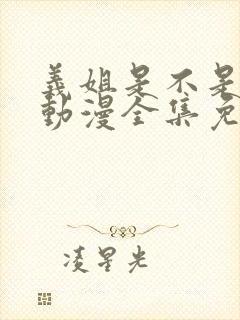 義姐是不是
動漫全集免
凌星光